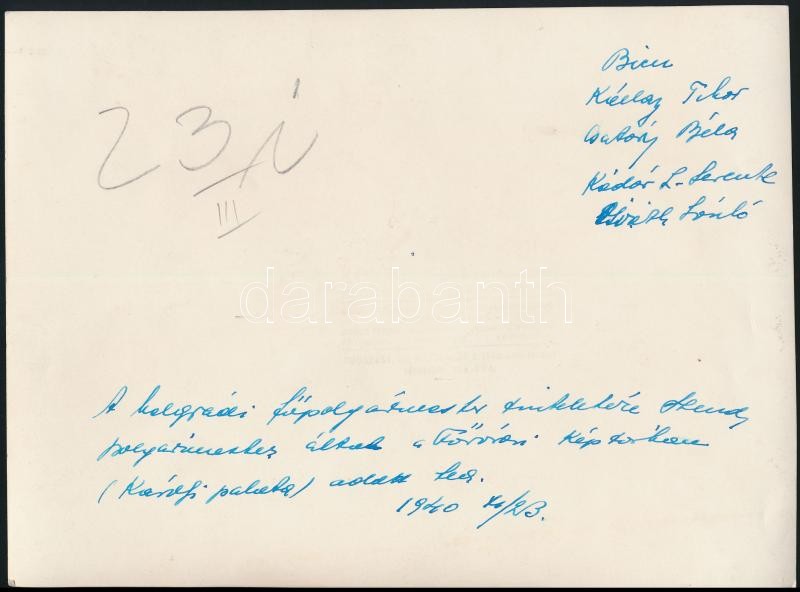 23
III
Bien
Kállay Tibor
Csatáry Béla
Kádár L. Levente
László
darabanth
A belgrádi főpolgármester tiszteletére Szendy
polgármester által a Fővárosi Képtárban
(Károlyi palota) adott tea.
1940